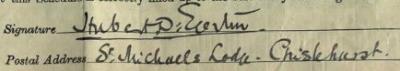 Signature Hubert D. Egerton
Postal Address St. Michaels Lodge. Chislehurst.